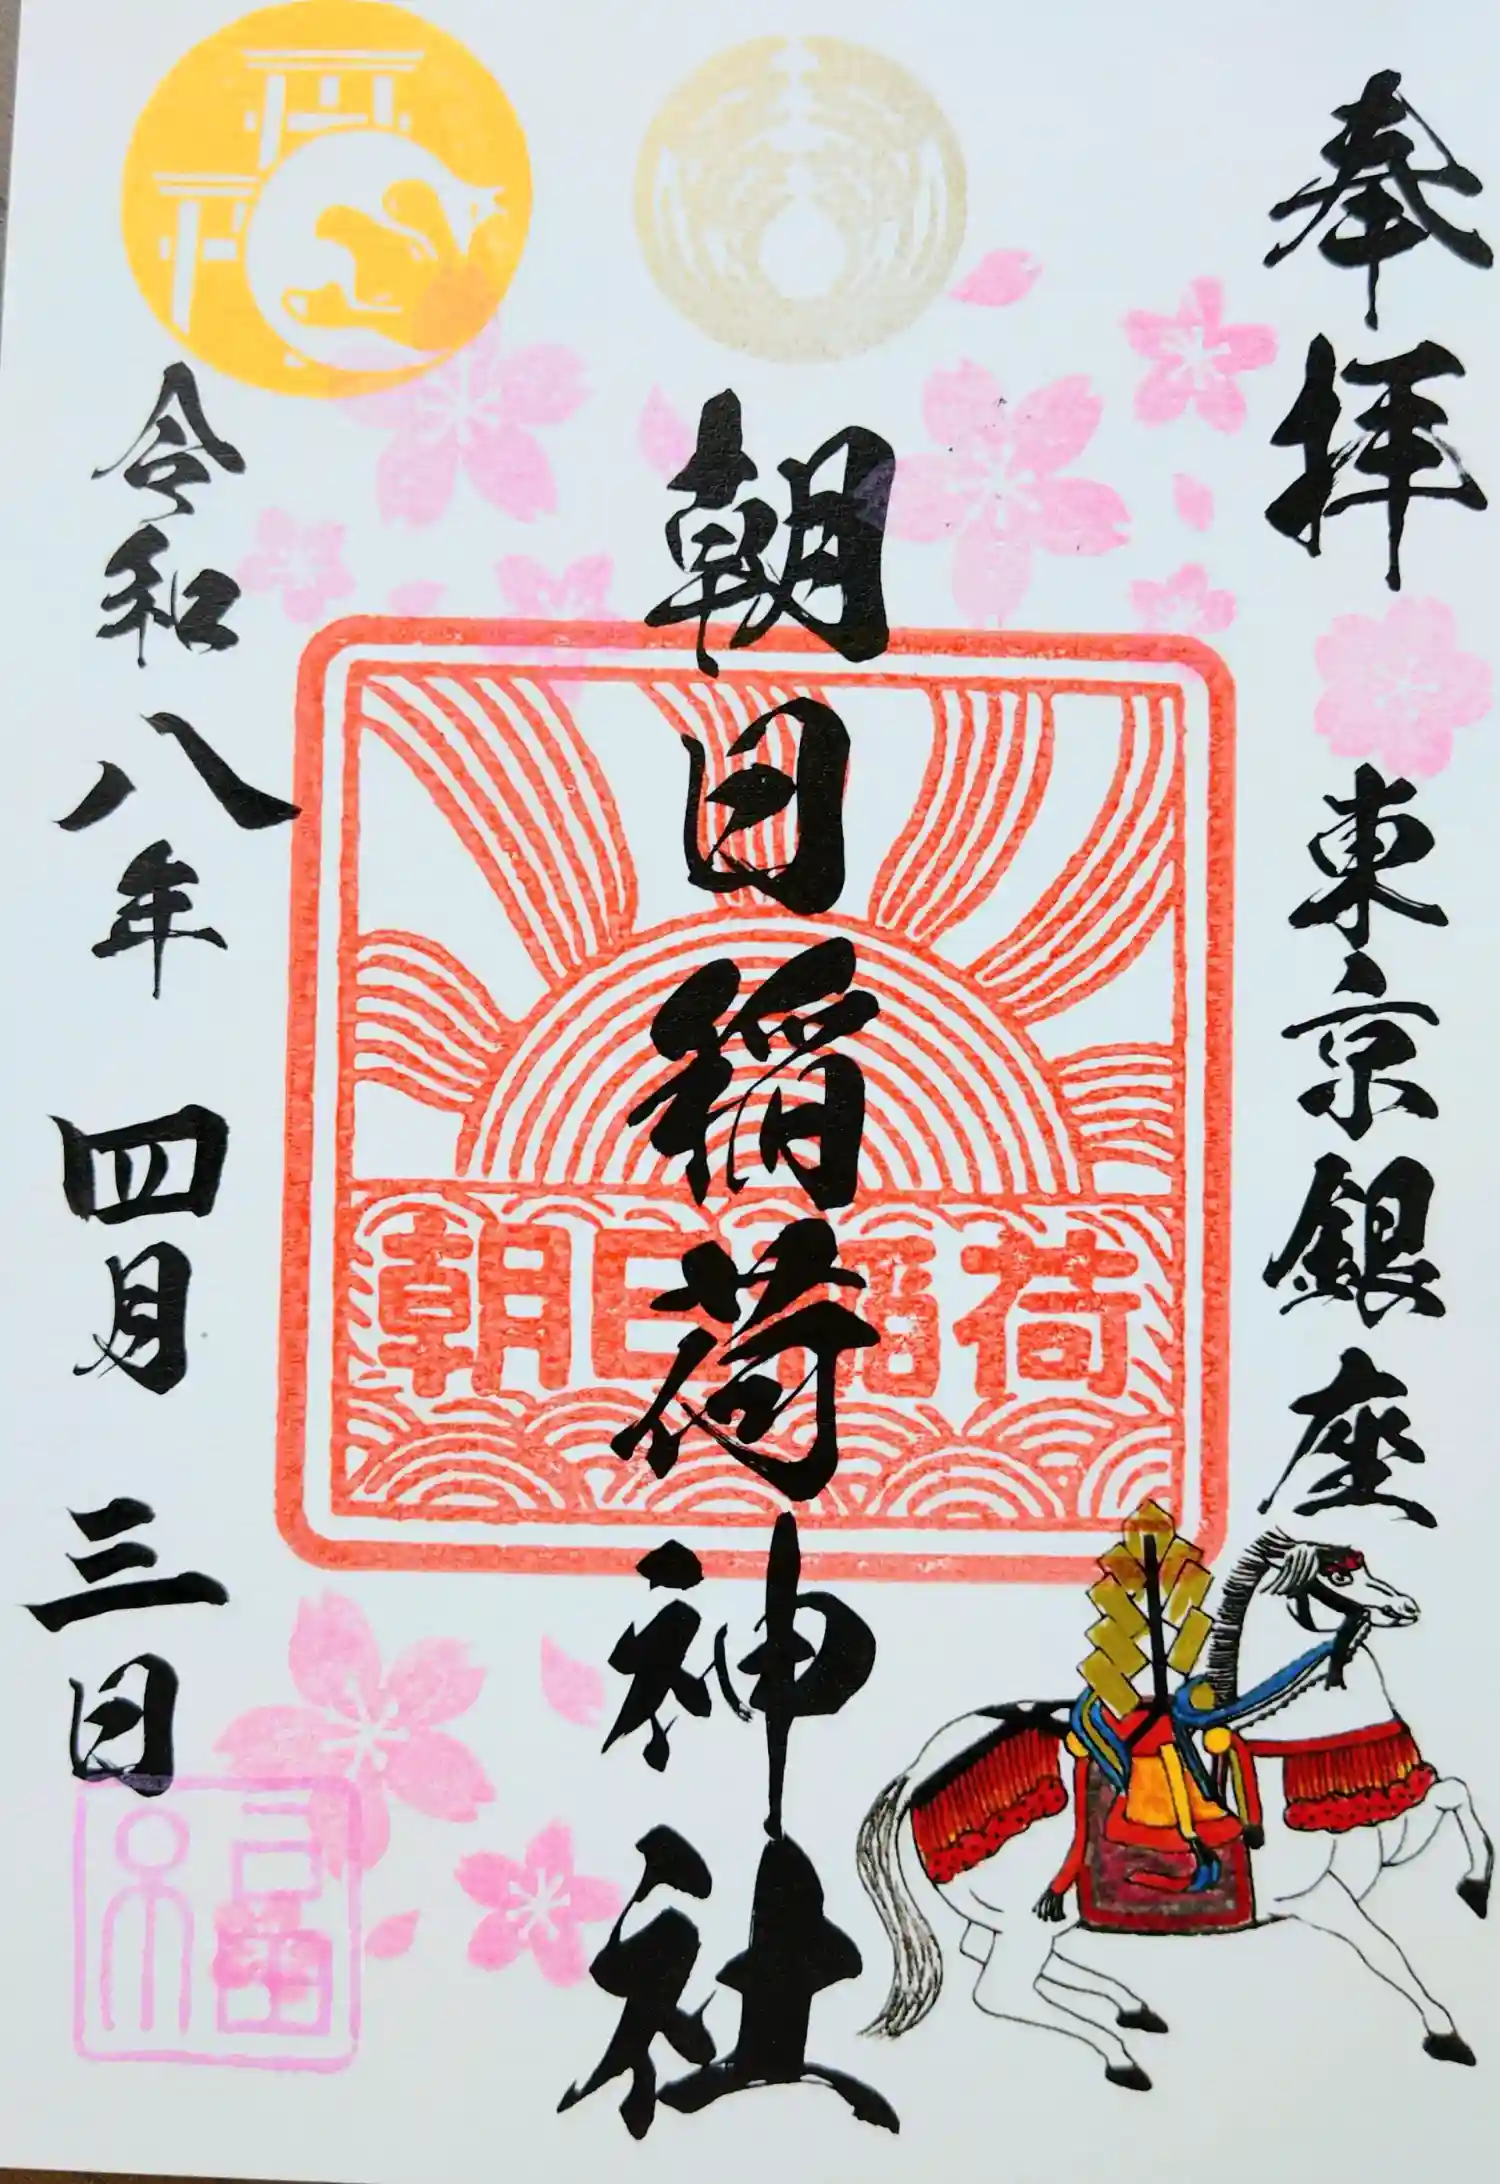 奉拝
東京銀座
朝日稲荷神社
朝日稲荷
令和八年
四月
三日
福